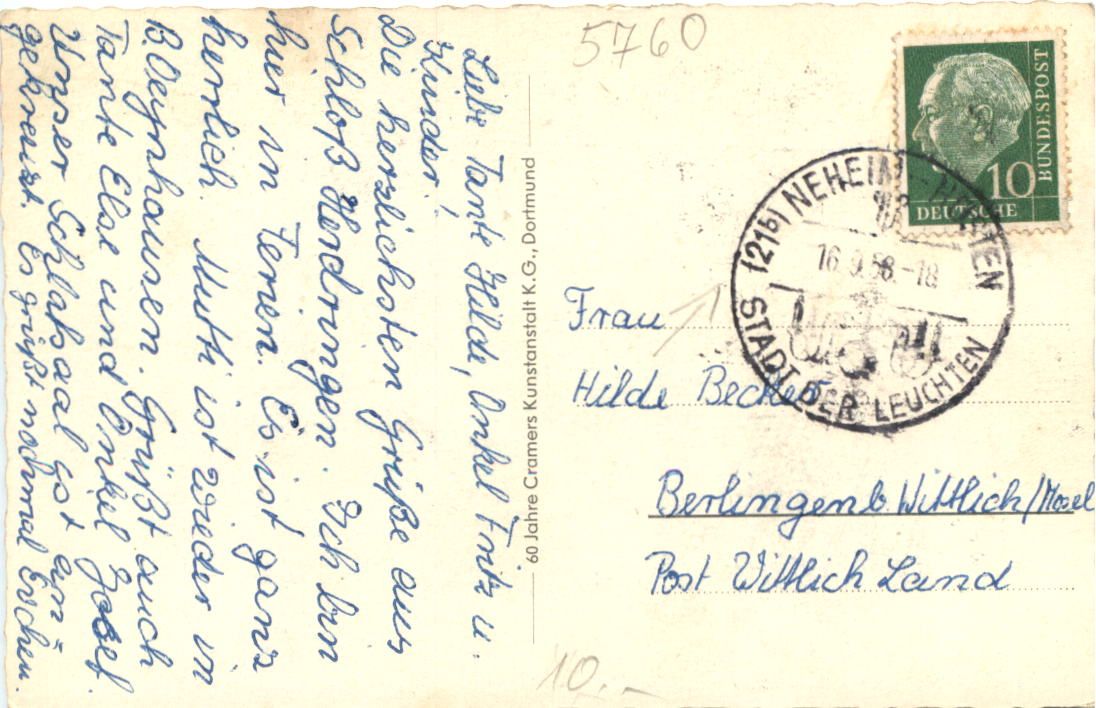 Liebe Tante Hilde, Onkel Fritz u.
Kinder!
Die herzlichsten Grüße aus
Schloß Herdringen. Ich bin
hier in Ferien. Es ist ganz
herrlich. Mutti ist wieder in
B. Oeynhausen. Grüßt auch
Tante Else und Onkel Josef.
Unser Schlafsaal ist an=
gekreuzt. Es grüßt nochmal
60 Jahre Cramers Kunstanstalt K.G., Dortmund
5760
DEUTSCHE
BUNDESPOST
10
(21b) NEHEIM-HÜSTEN
16.9.58-18
STADT DER LEUCHTEN
Frau
Hilde Becker
Berlingen b. Wittlich/Mosel
Post Wittlich Land
10.-